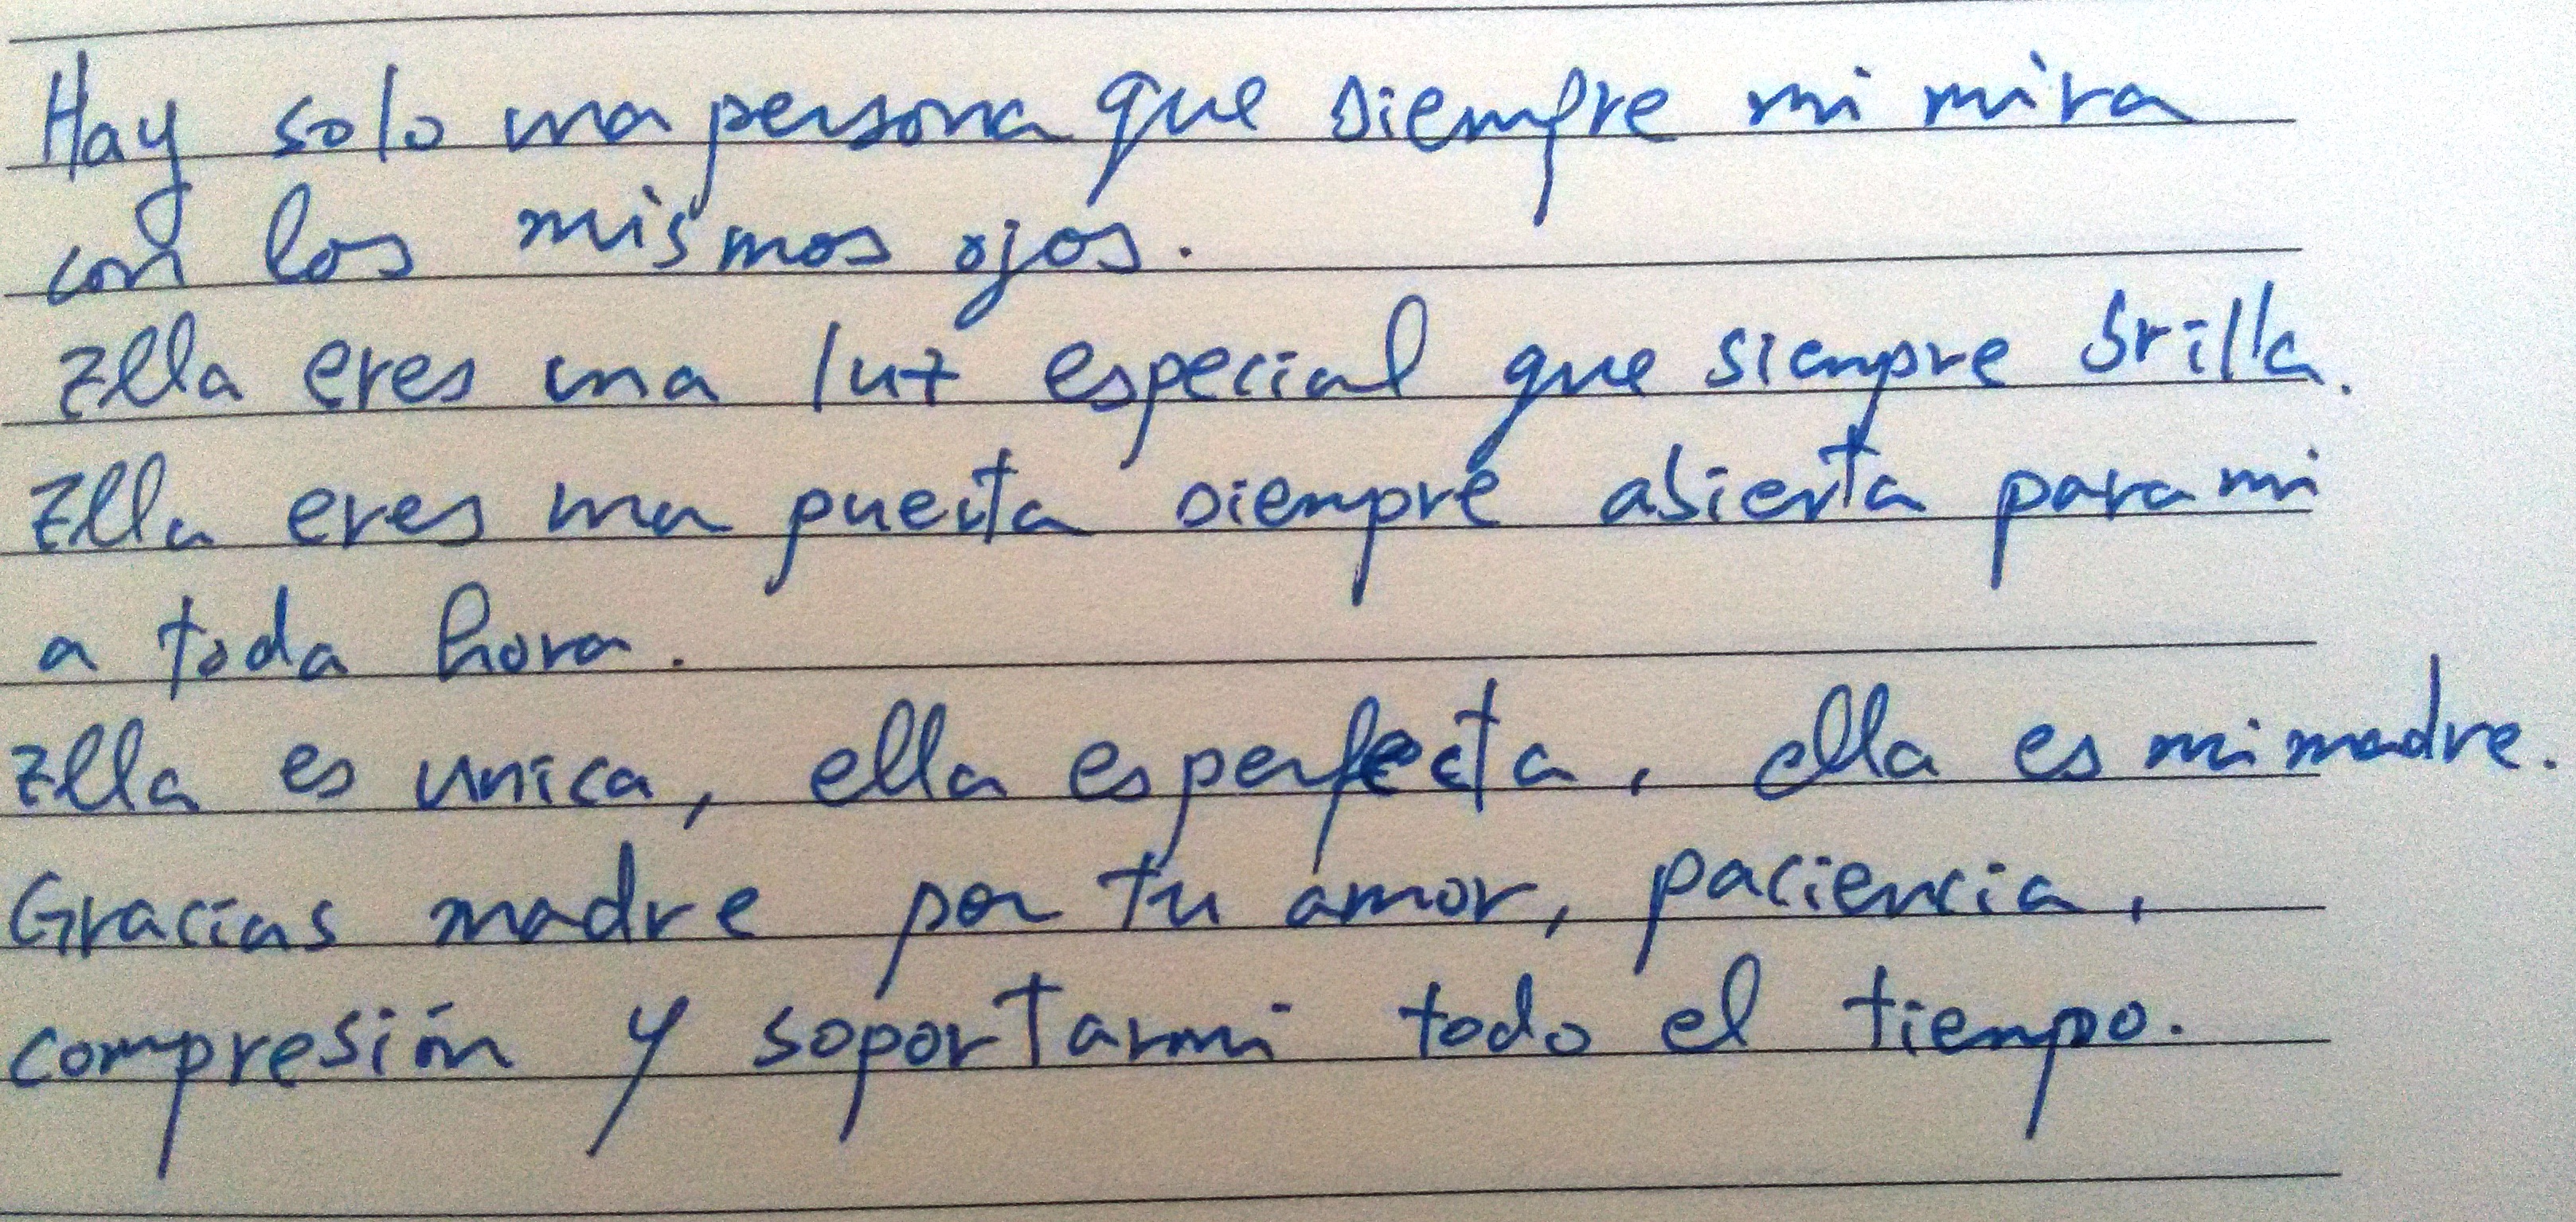 Hay solo una persona que siempre mi mira
con los mismos ojos.
Ella eres una luz especial que siempre brilla.
Ella eres una puerta siempre abierta para mi
a toda hora.
Ella es unica, ella es perfecta, ella es mi madre.
Gracias madre por tu amor, paciencia,
compresión y soportarmi todo el tiempo.